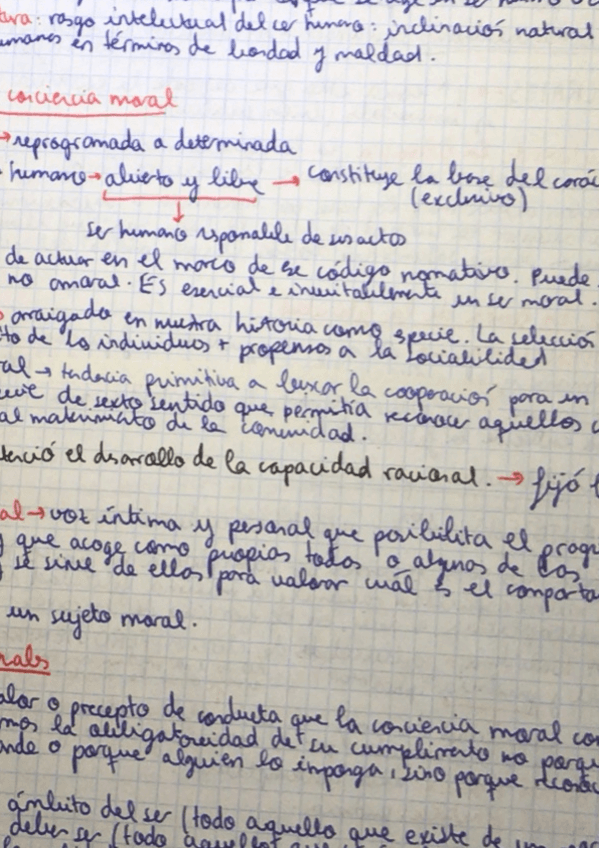 tura: rasgo intelectual del ser humano: inclinación natural
umanos en términos de bondad y maldad.
conciencia moral
→ reprogramada a determinada
humano → abierto y libre → constituye la base del carác
(exclusivo)
ser humano responsable de sus actos
de actuar en el marco de ese código normativo. Puede
no amoral. Es esencial e inevitablemente un ser moral.
arraigado en nuestra historia como especie. La selección
to de los individuos + propensos a la sociabilidad
al → tendencia primitiva a buscar la cooperación para un
de sexto sentido que permitía reconocer aquellos c
al mantenimiento de la comunidad.
tenció el desarrollo de la capacidad racional. → fijó l
al → voz íntima y personal que posibilita el progr
y que acoge como propios todos o algunos de los
y se sirve de ellos para valorar cuál es el comporta
un sujeto moral.
rales
alor o precepto de conducta que la conciencia moral con
mos la obligatoriedad de su cumplimiento no porqu
ande o porque alguien lo imponga, sino porque reconoc
ámbito del ser (todo aquello que existe de un
deber ser (todo aquello que